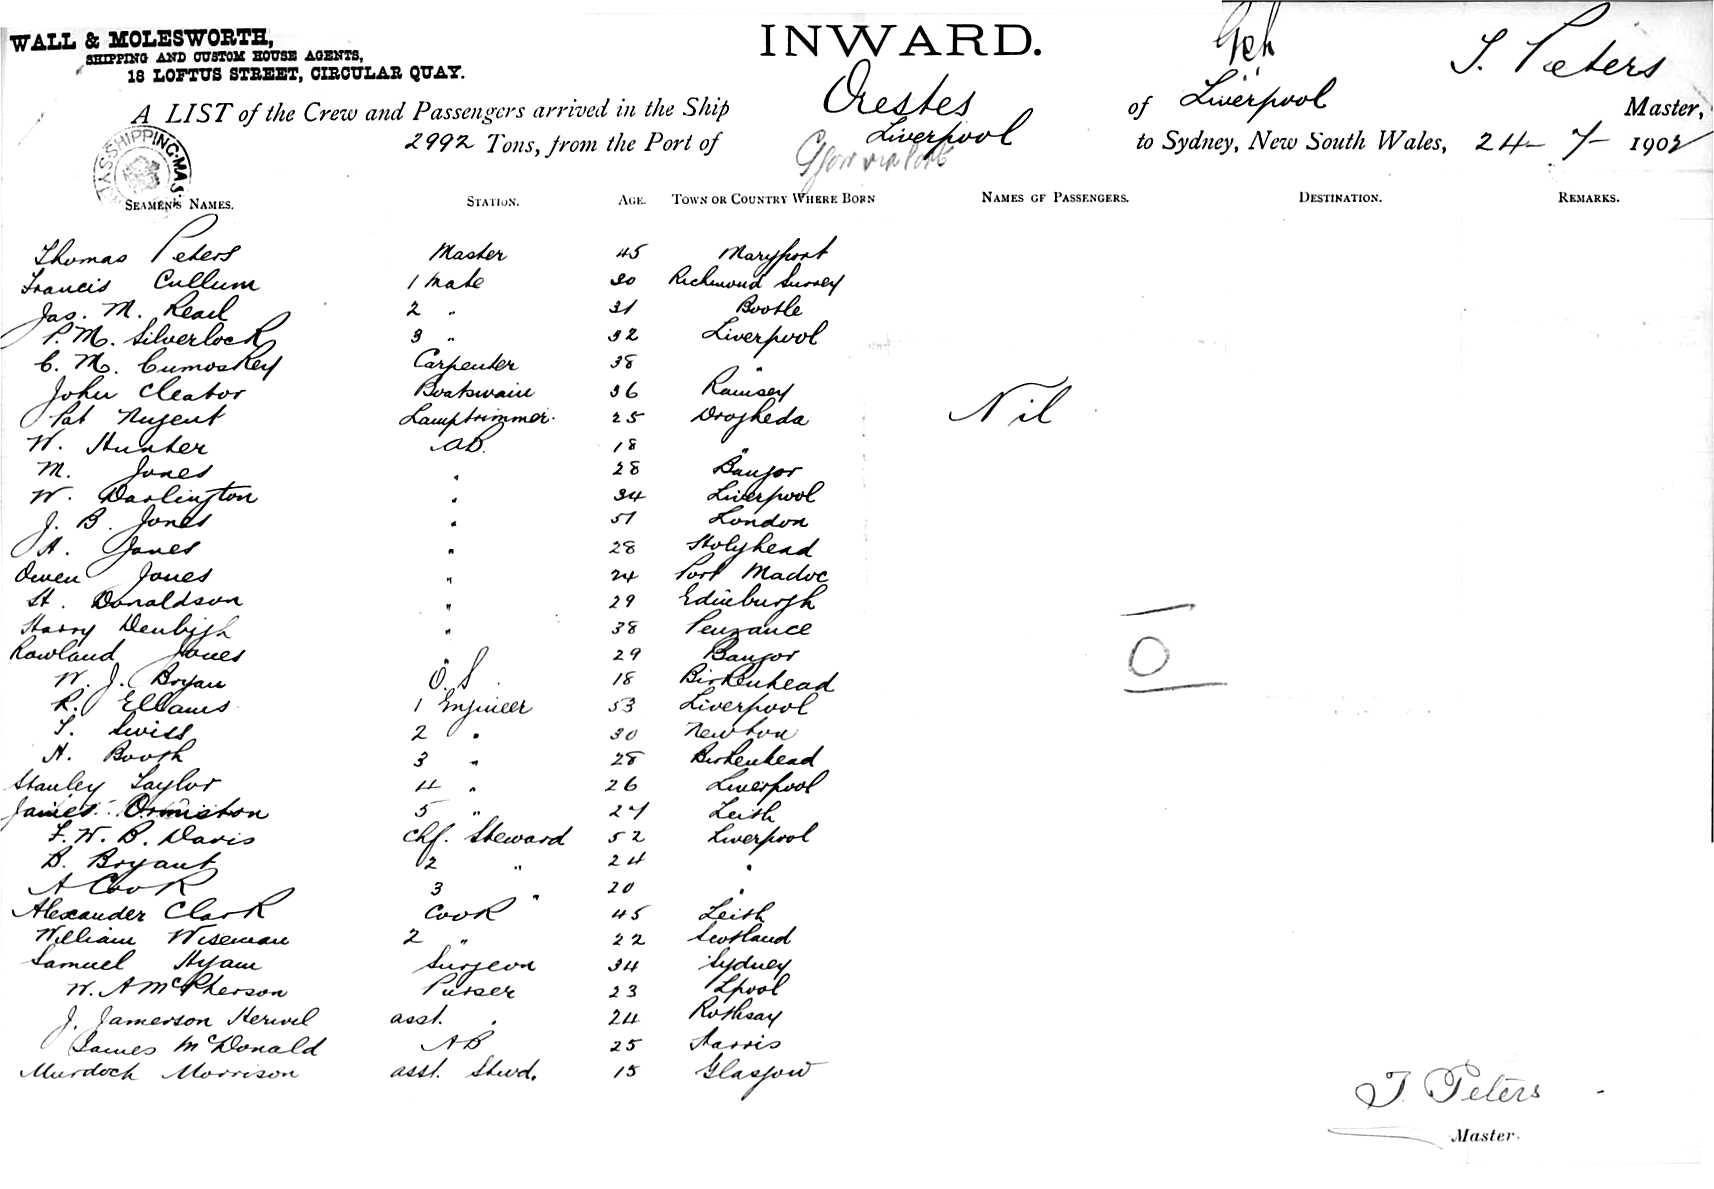 WALL & MOLESWORTH,
SHIPPING AND CUSTOM HOUSE AGENTS,
18 LOFTUS STREET, CIRCULAR QUAY.
INWARD.
A LIST of the Crew and Passengers arrived in the Ship Orestes of Liverpool T. Peters Master,
2992 Tons, from the Port of Liverpool to Sydney, New South Wales, 24-7-1902
SHIPPING MAS
SEAMEN'S NAMES. STATION. AGE. TOWN OR COUNTRY WHERE BORN NAMES OF PASSENGERS. DESTINATION. REMARKS.
Thomas Peters Master 45 Maryport
Francis Cullum 1 Mate 30 Richmond Surrey
Jas. M. Read 2 " 31 Bootle
P. M. Silverlock 3 " 32 Liverpool
C. M. Cumoskey Carpenter 38 "
John Cleator Boatswain 36 Ramsey
Pat Nugent Lamptrimmer. 25 Drogheda Nil
W. Hunter AB. 18 "
M. Jones " 28 Bangor
W. Darlington " 34 Liverpool
J. B. Jones " 51 London
H. Jones " 28 Holyhead
Owen Jones " 24 Port Madoc
H. Donaldson " 29 Edinburgh
Harry Denbigh " 38 Penzance
Rowland Jones " 29 Bangor O
W. J. Bryan O.S. 18 Birkenhead
R. Ellams 1 Engineer 53 Liverpool
T. Swiss 2 " 30 Newton
H. Booth 3 " 28 Birkenhead
Stanley Taylor 4 " 26 Liverpool
James Ormiston 5 " 27 Leith
F. W. B. Davis Chf. Steward 52 Liverpool
B. Bryant 2 " 24 "
A Cook 3 " 20 "
Alexander Clark Cook 45 Leith
William Wiseman 2 " 22 Scotland
Samuel Hyam Surgeon 34 Sydney
W. A McPherson Purser 23 Lpool
J. Jamerson asst. " 24 Rothsay
James McDonald AB 25 Harris
Murdoch Morrison asst. Stwd. 15 Glasgow
T. Peters
Master.